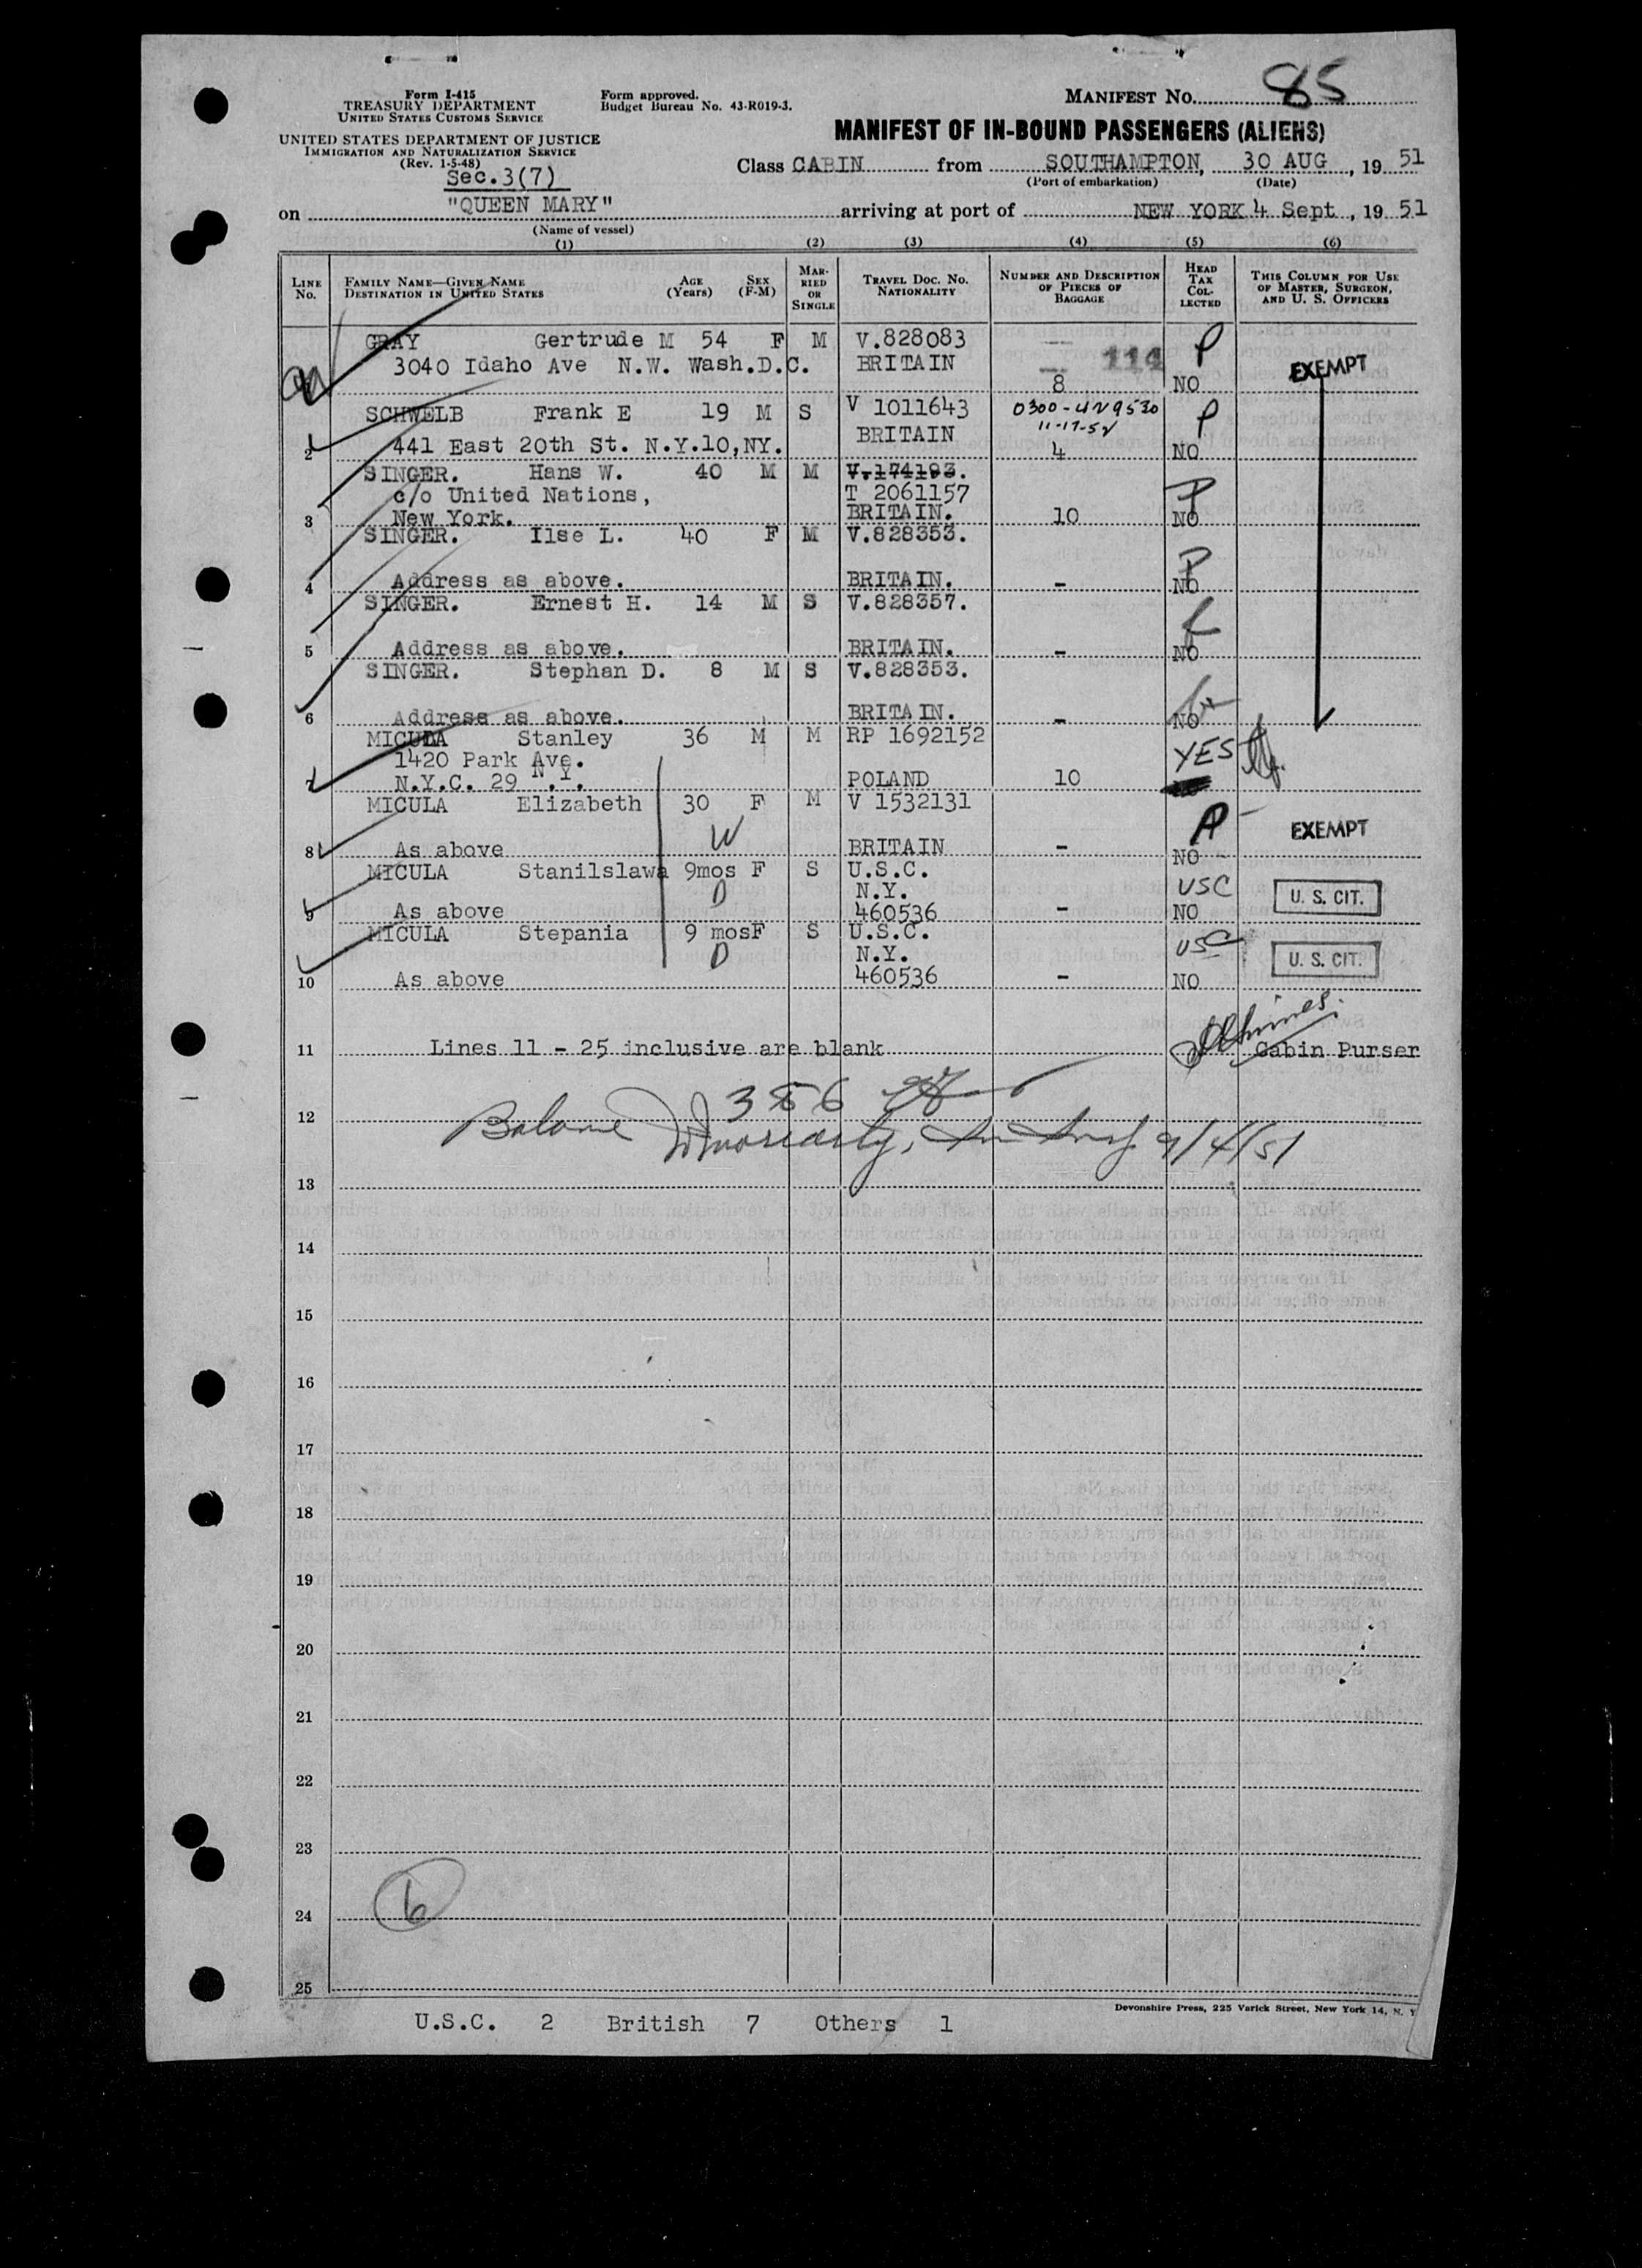 Form I-415
TREASURY DEPARTMENT
UNITED STATES CUSTOMS SERVICE
UNITED STATES DEPARTMENT OF JUSTICE
IMMIGRATION AND NATURALIZATION SERVICE
(Rev. 1-5-48)
Sec.3(7)
Form approved.
Budget Bureau No. 43-R019-3.
MANIFEST No. 85
MANIFEST OF IN-BOUND PASSENGERS (ALIENS)
Class CABIN from SOUTHAMPTON, 30 AUG, 19 51
(Port of embarkation) (Date)
on "QUEEN MARY" arriving at port of NEW YORK 4 Sept, 19 51
(Name of vessel)
(1) (2) (3) (4) (5) (6)
LINE No. FAMILY NAME—GIVEN NAME DESTINATION IN UNITED STATES AGE (Years) SEX (F-M) MARRIED OR SINGLE TRAVEL DOC. No. NATIONALITY NUMBER AND DESCRIPTION OF PIECES OF BAGGAGE HEAD TAX COLLECTED THIS COLUMN FOR USE OF MASTER, SURGEON, AND U. S. OFFICERS
GRAY Gertrude M 54 F M V.828083 P
3040 Idaho Ave N.W. Wash.D.C. BRITAIN 114 EXEMPT
8 NO
SCHWELB Frank E 19 M S V 1011643 0300-UN9530 P
11-17-52
2 441 East 20th St. N.Y.10,NY. BRITAIN 4 NO
SINGER. Hans W. 40 M M V.174193.
c/o United Nations, T 2061157 P
3 New York. BRITAIN. 10 NO
SINGER. Ilse L. 40 F M V.828353.
P
4 Address as above. BRITAIN. - NO
SINGER. Ernest H. 14 M S V.828357.
5 Address as above. BRITAIN. - NO
SINGER. Stephan D. 8 M S V.828353.
6 Address as above. BRITAIN. - NO
MICULA Stanley 36 M M RP 1692152
1420 Park Ave. YES
7 N.Y.C. 29 N.Y. POLAND 10
MICULA Elizabeth 30 F M V 1532131
W P EXEMPT
8 As above BRITAIN - NO
MICULA Stanilslawa 9mos F S U.S.C.
D N.Y. USC U. S. CIT.
9 As above 460536 - NO
MICULA Stepania 9 mosF S U.S.C.
D N.Y. USC U. S. CIT.
10 As above 460536 - NO
11 Lines 11 - 25 inclusive are blank Cabin Purser
12
9/4/51
13
14
15
16
17
18
19
20
21
22
23
24 6
25
Devonshire Press, 225 Varick Street, New York 14, N. Y.
U.S.C. 2 British 7 Others 1